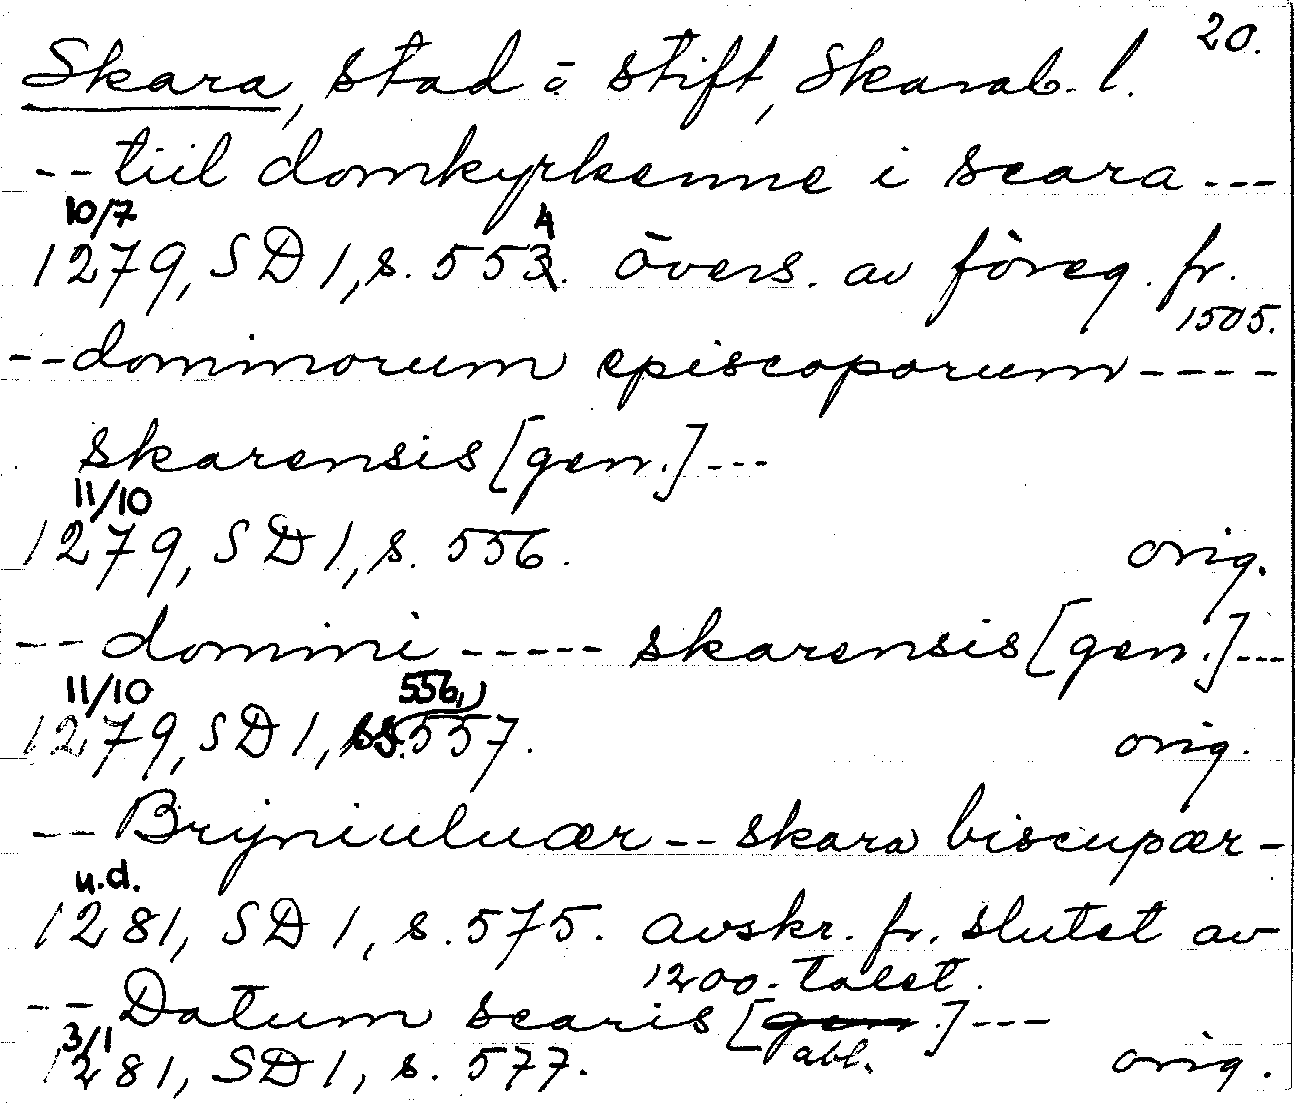 20.
Skara, stad o stift, Skarab. l.
-- tiil domkyrkenne i scara ---
10/7 4
1279, SD 1, s. 553. övers. av föreg. fr.
1505.
-- dominorum episcoporum ----
skarensis [gen.] ---
11/10
1279, SD 1, s. 556. orig.
-- domini ----- skarensis [gen.] ---
11/10 556,
1279, SD 1, ss. 557. orig.
-- Brijniuluær -- skara biscupær -
u.d.
1281, SD 1, s. 575. avskr. fr. slutet av
1200-talet.
-- Datum scaris [gen.] ---
3/1 abl.
1281, SD 1, s. 577. orig.